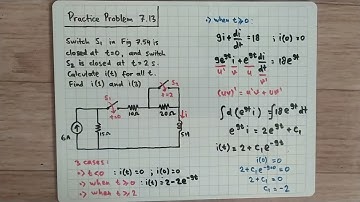 Practice Problem 7.13
Switch S₁ in Fig 7.54 is
closed at t=0, and switch
S₂ is closed at t=2 s.
Calculate i(t) for all t.
Find i(1) and i(3)
S₁
t=0
S₂
t=2
10Ω
20Ω
6A
15Ω
i
5H
3 cases:
→ t<0 : i(t)=0 ; i(0)=0
→ when t≥0 : i(t)=2-2e⁻⁹ᵗ
→ when t≥2
→ when t≥0:
9i+di/dt=18 ; i(0)=0
9e⁹ᵗi+e⁹ᵗdi/dt=18e⁹ᵗ
u' v u v'
(uv)'=u'v+uv'
∫d(e⁹ᵗi)=∫18e⁹ᵗ
e⁹ᵗi=2e⁹ᵗ+C₁
i(t)=2+C₁e⁻⁹ᵗ
i(0)=0
2+C₁e⁻⁹*⁰=0
2+C₁=0
C₁=-2